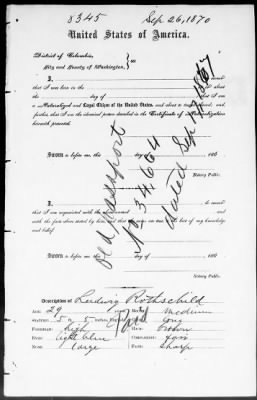 8345 Sep. 26, 1870
United States of America.
District of Columbia,
City and County of Washington, } ss
I, swear
that I was born in the
on the day of
a Naturalized and Loyal Citizen of the United States, and about to travel abroad; and,
further, that I am the identical person described in the Certificate of Naturalization
herewith presented.
Sworn before me this day of 186
Notary Public.
old passport
No 34664
dated Sep 1867
I, swear
that I am acquainted with the above named and
with the facts above stated by him, and that are true to the best of my knowledge
and belief.
Sworn before me this day of 186
Notary Public.
Description of Ludwig Rothschild
Age: 29 Mouth: medium
Stature: 5 5 Chin: long
Forehead: high Hair: brown
Eyes: light blue Complexion: fair
Nose: large Face: sharp
Paid